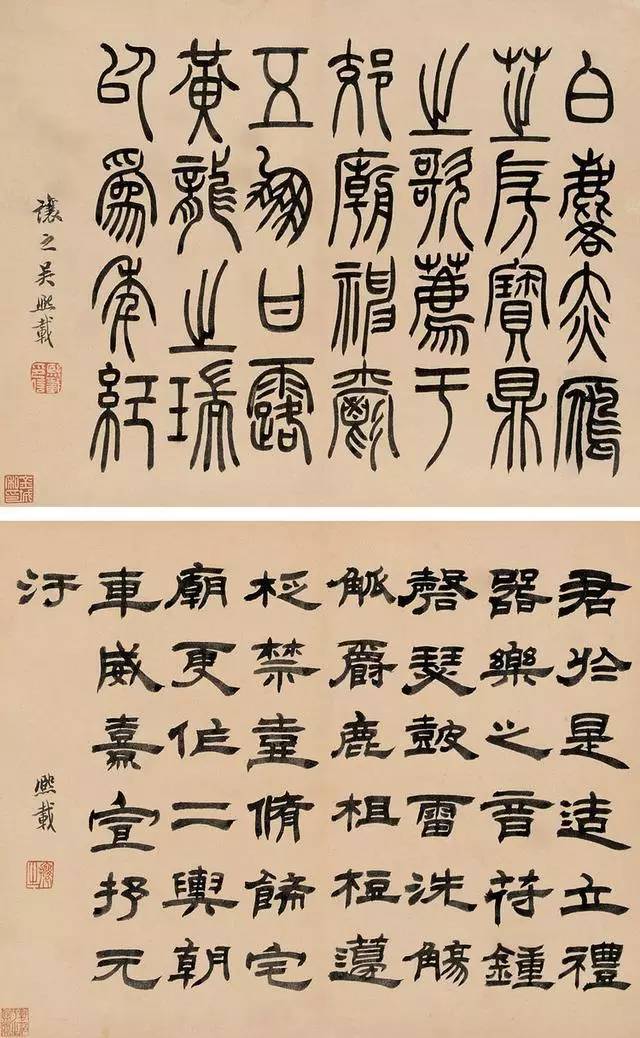 白麟赤鴈
芝房寶鼎
之歌薦于
郊廟神爵
五鳳甘露
黃龍之瑞
以為年紀
讓之吳熙載
君於是造立禮
器樂之音苻鍾
磬瑟鼓雷洗觴
觚爵鹿柤梪籩
柉禁壺脩飾宅
廟更作二輿朝
車威熹宣抒元
汙
熙載